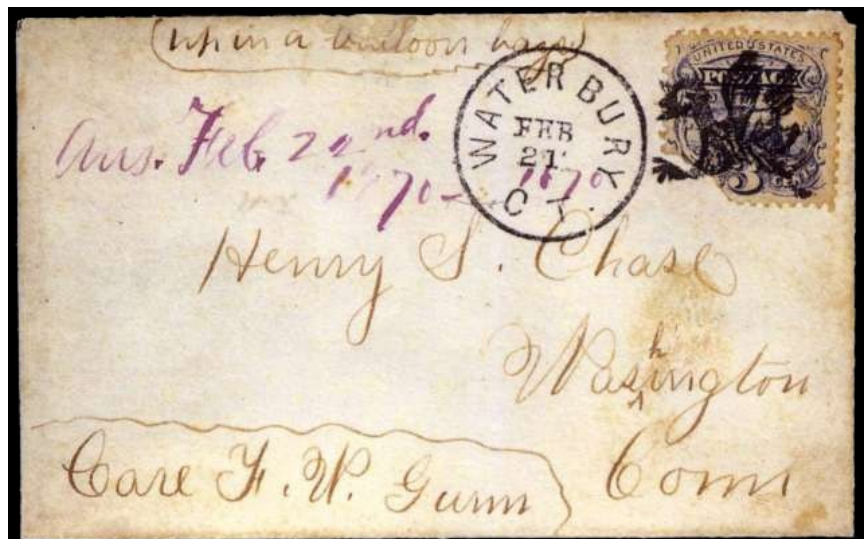 (up in a balloon boys)
UNITED STATES
POSTAGE
WATERBURY CT.
FEB
21
Ans. Feb. 22nd.
1870 - 1870
Henry S. Chase
Washington
Conn
Care F. W. Gunn
3